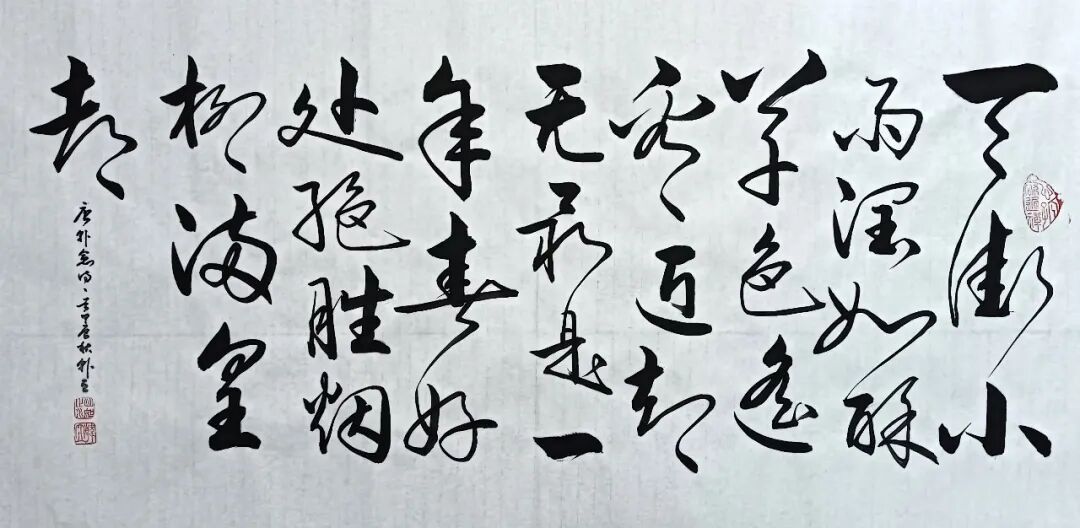 天街小
雨润如酥
草色遥
看近却
无最是一
年春好
处绝胜烟
柳满皇
都
唐韩愈诗